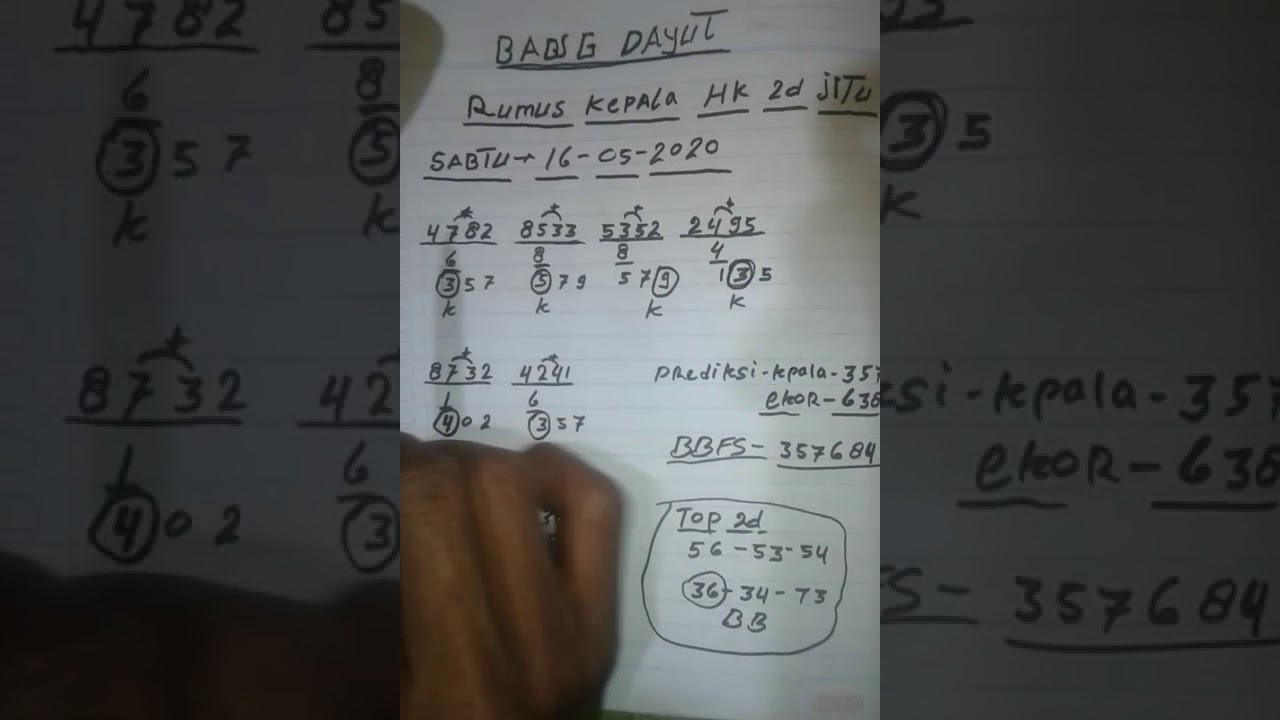 BABSG DAYUT
RUMUS KEPALA HK 2d JITU
SABTU → 16-05-2020
4782 8533 5352 2495
6 8 8 4
357 579 579 135
K K K K
8732 4241
1 6
402 357
PREDIKSI-KPALA-357
EKOR-638
BBFS-357684
TOP 2d
56-53-54
36-34-73
BB